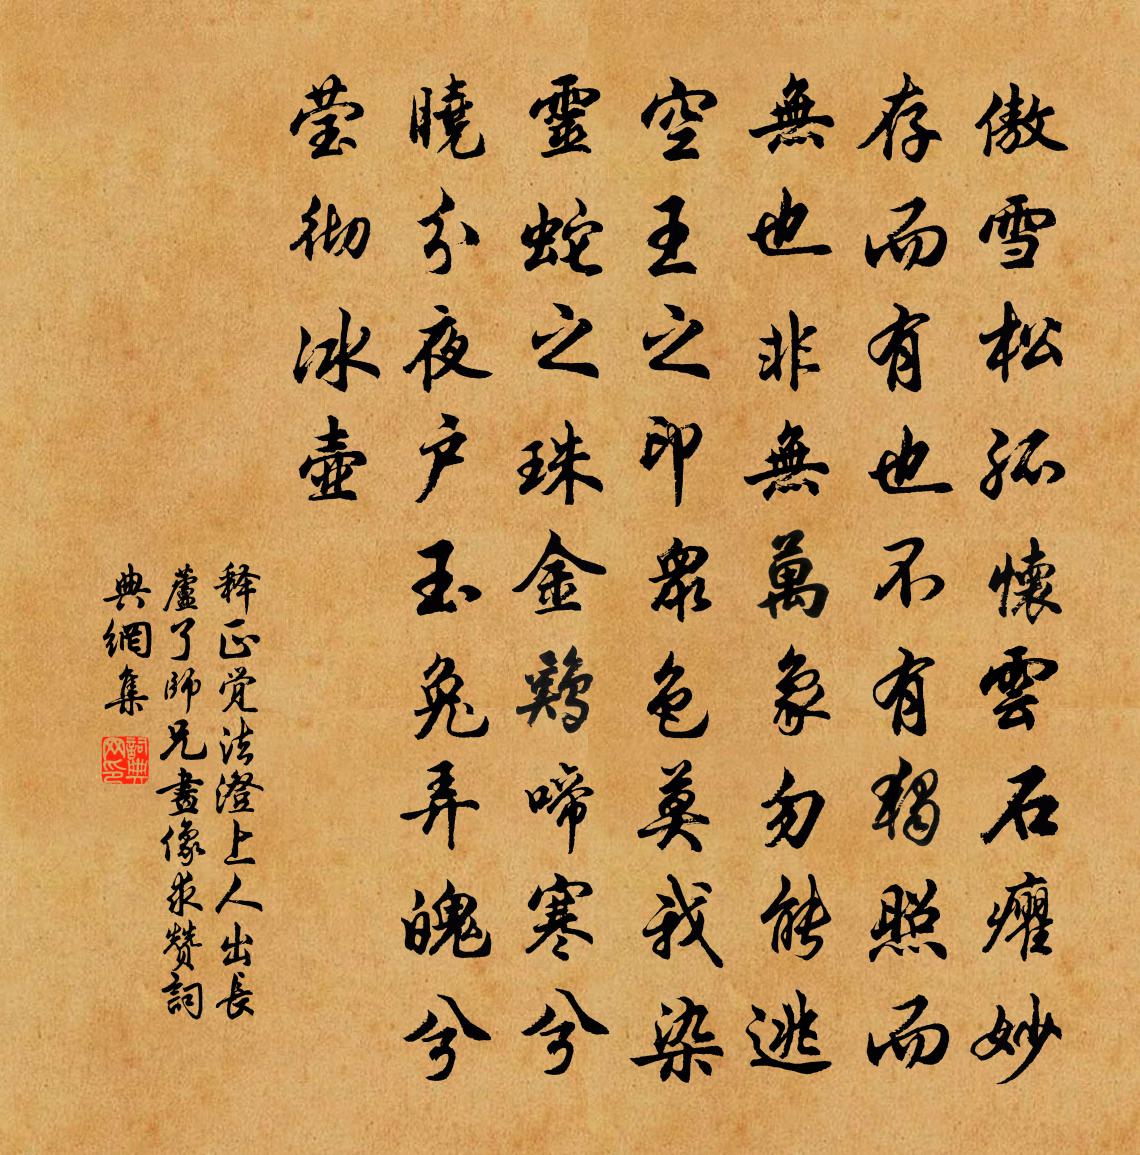 傲雪松孤懷雲石癯妙
存而有也不有獨照而
無也非無萬象勿能逃
空王之印衆色莫我染
靈蛇之珠金鷄啼寒兮
曉分夜户玉兔弄魄兮
莹彻冰壺
释正觉法澄上人出長
蘆了師兄畫像求赞詞
典網集
詞典网印